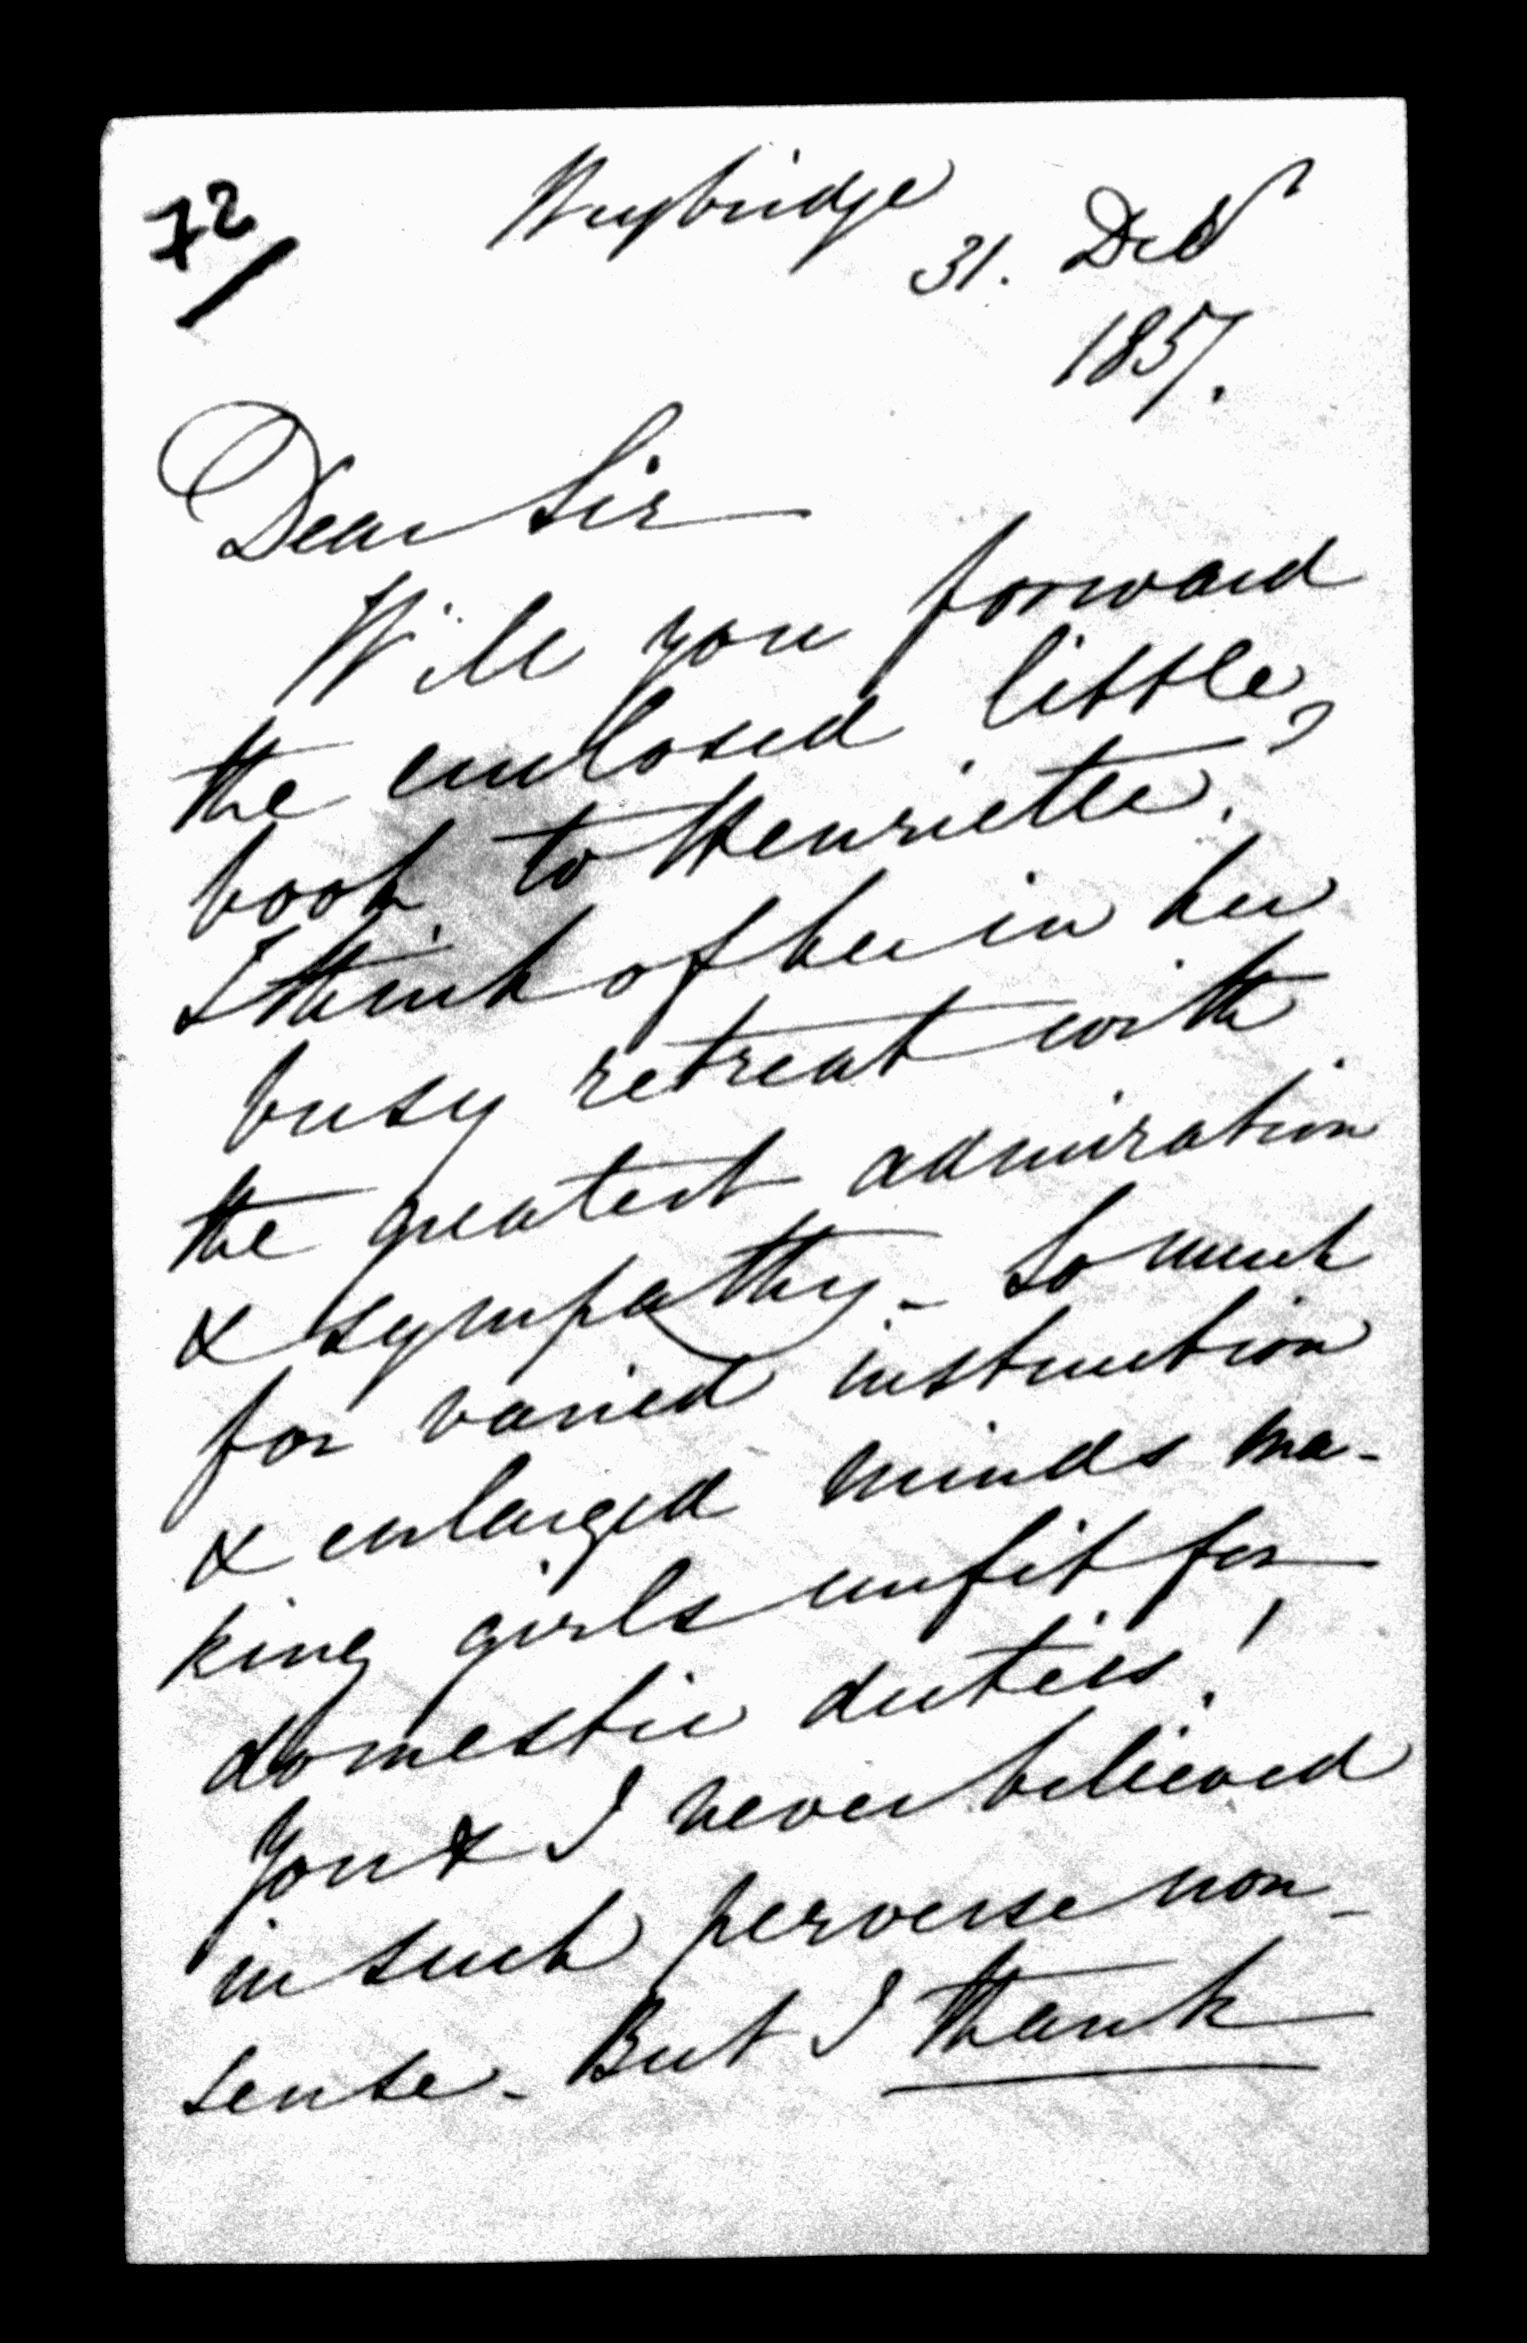 72/
Weybridge
31. Decr
1857.
Dear Sir
Will you forward
the enclosed little
book to Henriette?
I think of her in her
busy retreat with
the greatest admiration
& sympathy - So much
for varied instruction
& enlarged minds ma-
king girls unfit for
domestic duties!
You & I never believed
in such perverse non-
sense - But I thank